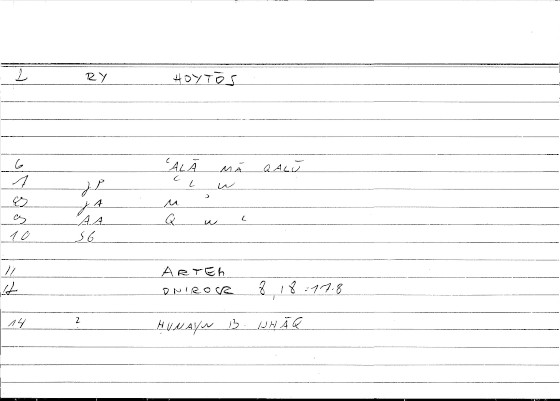 2 RY HOYTŌS
6 ʿALĀ MĀ QALŪ
7 JP ʿ L W
8 JA M ʾ
9 AA Q W L
10 SG
11 ARTEM
12 ONIROCR 8,18-19.8
14 2 HUNAYN B. ISHĀQ